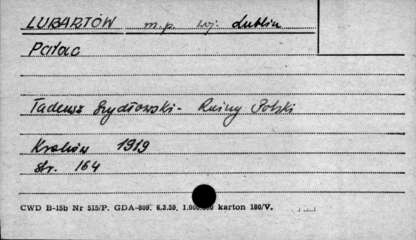 LUBARTÓW m.p. woj. Lublin
Pałac
Tadeusz Szydłowski - Ruiny Polski
Kraków 1919
str. 164
CWD B-15b Nr 515/P. GDA-899. 6.3.59. 1.000.000 karton 180/V.